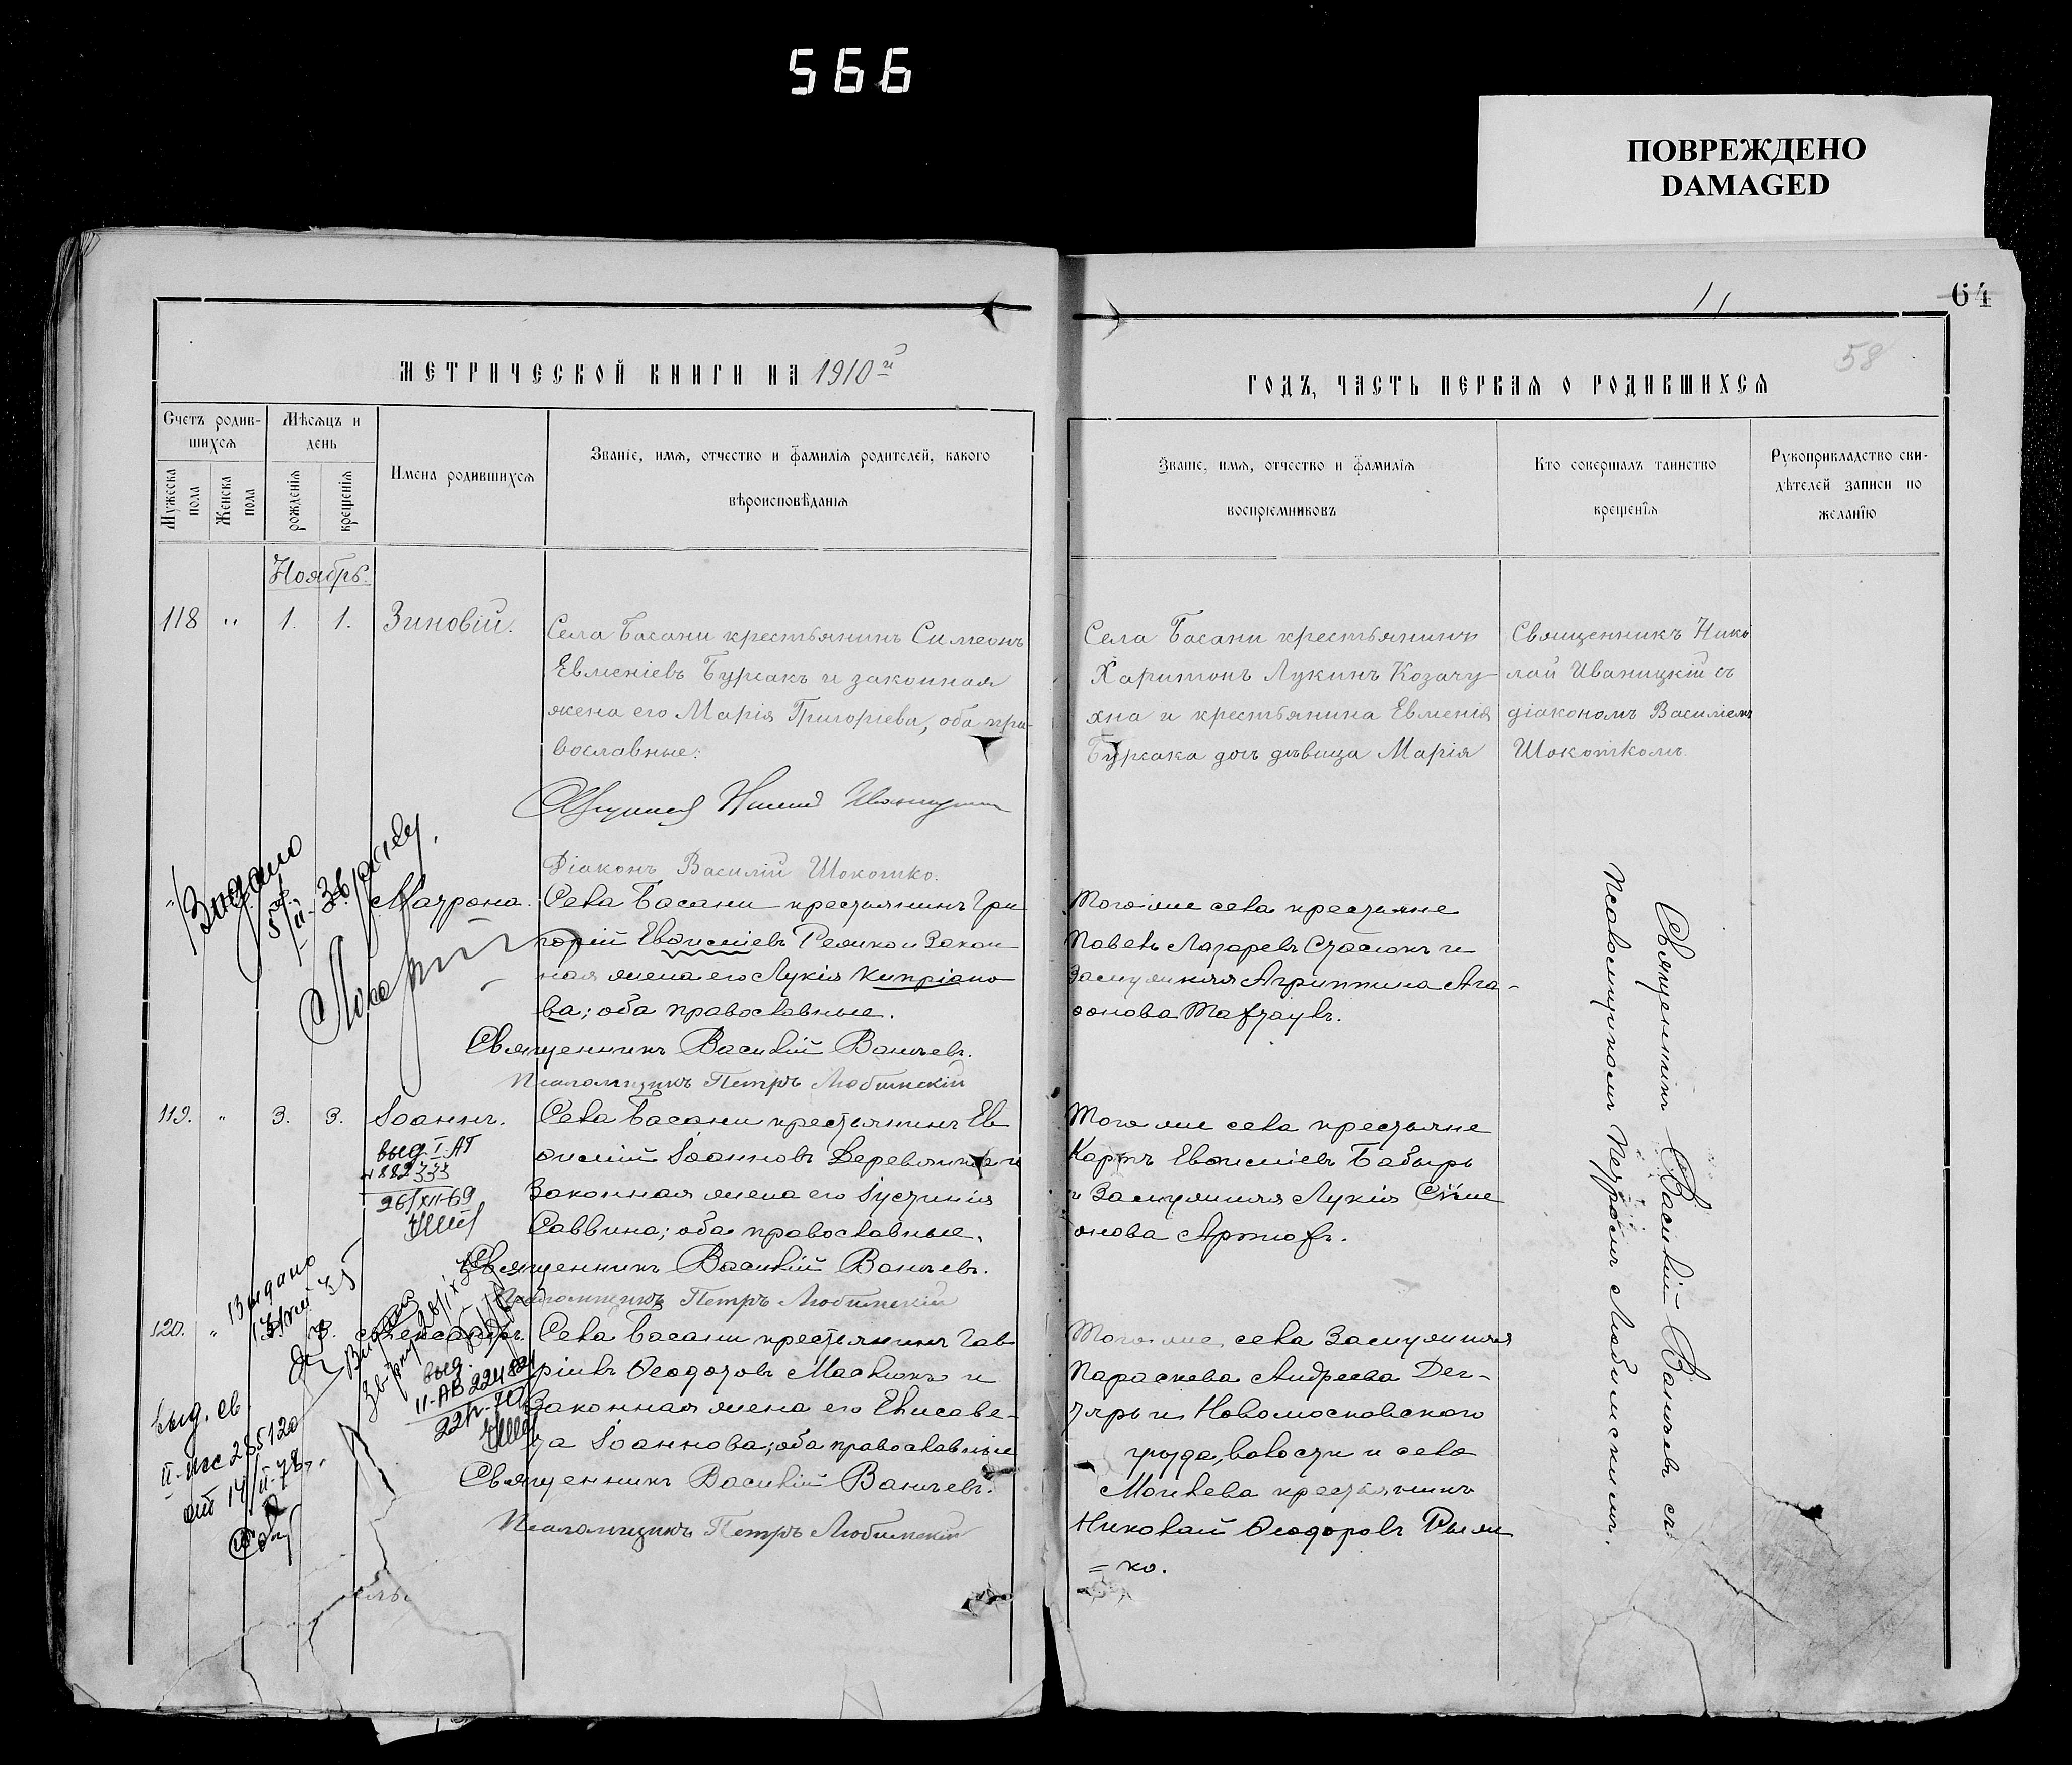 566
ПОВРЕЖДЕНО
DAMAGED
64
58
МЕТРИЧЕСКОЙ КНИГИ НА 1910й
ГОДЪ, ЧАСТЬ ПЕРВАЯ О РОДИВШИХСЯ
Счетъ родив-
шихся
Мужеска
пола
Женска
пола
Мѣсяцъ и
день
рожденія
крещенія
Имена родившихся
Званіе, имя, отчество и фамилія родителей, какого
вѣроисповѣданія
Званіе, имя, отчество и фамилія
воспріемниковъ
Кто совершалъ таинство
крещенія
Рукоприкладство сви-
дѣтелей записи по
желанію
Ноябрь.
118 " 1. 1. Зиновій.
Села Басани крестьянинъ Симеонъ
Евменіевъ Бурсакъ и законная
жена его Марія Григоріева, оба пра-
вославные:
Діаконъ Василій Шокотко.
Села Басани крестьянинъ
Харитонъ Лукинъ Козачу-
хна и крестьянина Евменія
Бурсака дочь дѣвица Марія
Священникъ Нико
лай Иваницкій съ
діакономъ Василіемъ
Шокоткомъ.
Матрона.
Села Басани крестьянинъ Гри
горій Евѳиміевъ Релико и Закон
ная жена его Лукія Кипріано
ва; оба православные.
Священникъ Василій Ваничевъ.
Псаломщикъ Петръ Любимскій
Того же села крестьяне
Павелъ Лазаревъ Стасюкъ и
Замужняя Агриппина Ага-
ѳонова
Выдано
119. " 3. 3. Іоаннъ.
выд. I АТ
26/XII-69
Села Басани крестьянинъ Ев
ѳимій Іоанновъ Деревянко и
Законная жена его Іустинія
Саввина; оба православные.
Священникъ Василій Ваничевъ.
Псаломщикъ Петръ Любимскій
Того же села крестьяне
Карпъ Евѳиміевъ Бабырь
и Замужняя Лукія Симе
онова Артюхъ.
Выдано
120. " Александръ.
выд.
II-АВ
Села Басани крестьянинъ Гав
ріилъ Ѳеодоровъ Маслюкъ и
Законная жена его Елисаве-
та Іоаннова; оба православные
Священникъ Василій Ваничевъ.
Псаломщикъ Петръ Любимскій
Того же села Замужняя
Параскева Андреева Дег-
тярь и Новомосковскаго
уѣзда, волости и села
крестьянинъ
Николай Ѳеодоровъ Рыж
= ко.
выд. св.
от 14/II-78
Священникъ Василій Ваничевъ съ
Псаломщикомъ Петромъ Любимскимъ.